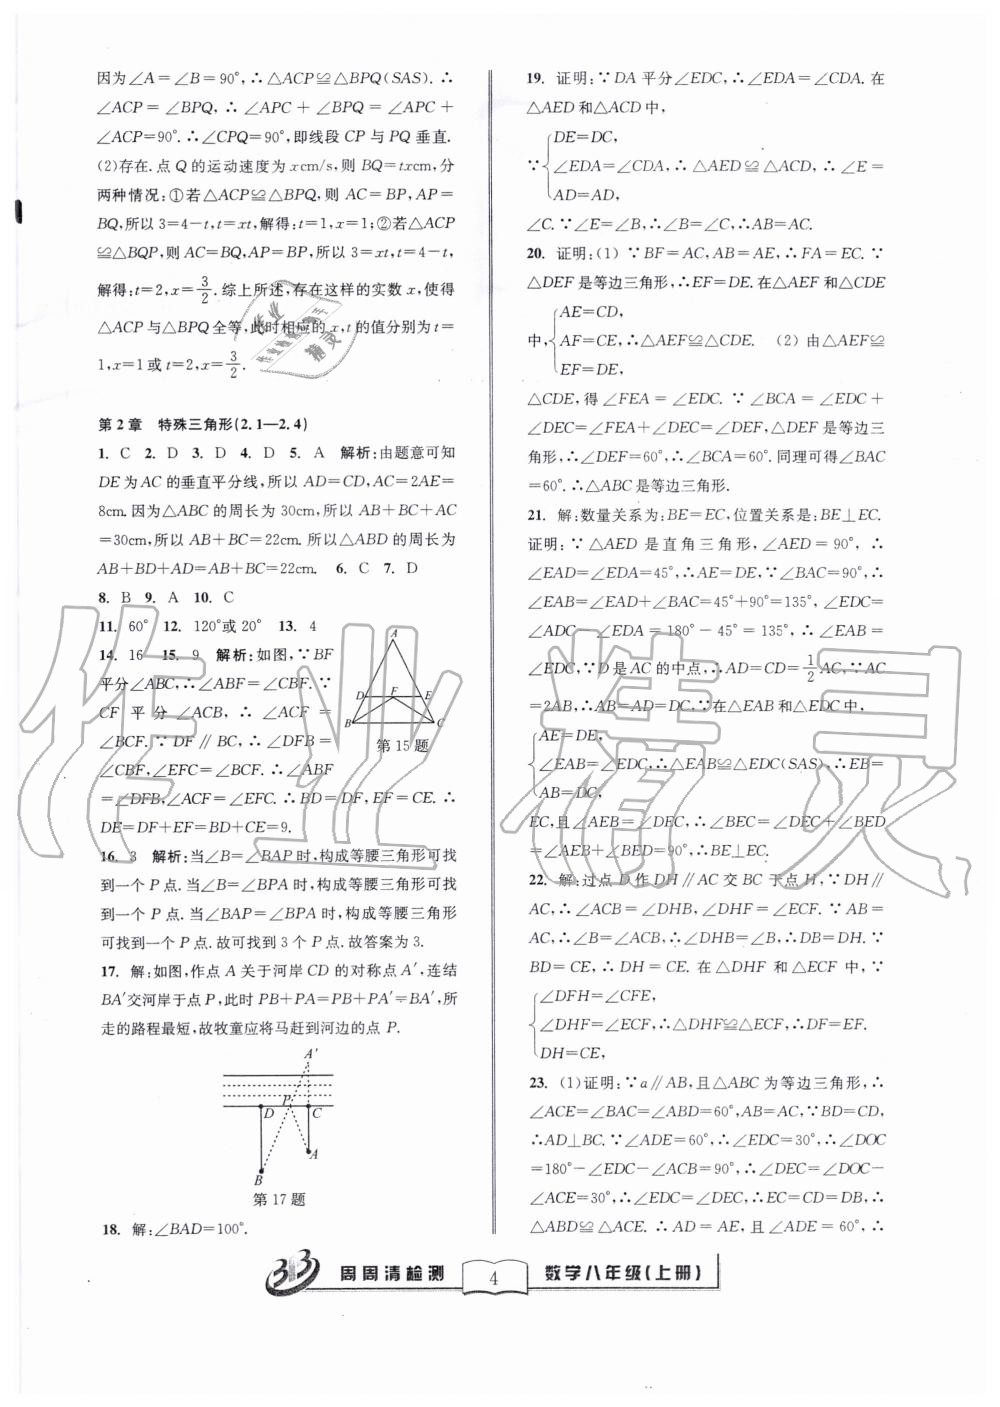 因为∠A=∠B=90°,∴△ACP≌△BPQ(SAS).∴
∠ACP=∠BPQ,∴∠APC+∠BPQ=∠APC+
∠ACP=90°.∴∠CPQ=90°,即线段 CP 与 PQ 垂直.
(2)存在.点 Q 的运动速度为 x cm/s,则 BQ=txcm,分
两种情况:①若△ACP≌△BPQ,则 AC=BP,AP=
BQ,所以 3=4-t,t=xt,解得:t=1,x=1;②若△ACP
≌△BQP,则 AC=BQ,AP=BP,所以 3=xt,t=4-t,
解得:t=2,x=3/2.综上所述,存在这样的实数 x,使得
△ACP 与△BPQ 全等,此时相应的 x,t 的值分别为 t=
1,x=1 或 t=2,x=3/2.
第 2 章 特殊三角形(2.1—2.4)
1. C 2. D 3. D 4. D 5. A 解析:由题意可知
DE 为 AC 的垂直平分线,所以 AD=CD,AC=2AE=
8cm.因为△ABC 的周长为 30cm,所以 AB+BC+AC
=30cm,所以 AB+BC=22cm.所以△ABD 的周长为
AB+BD+AD=AB+BC=22cm. 6. C 7. D
8. B 9. A 10. C
11. 60° 12. 120°或 20° 13. 4
14. 16 15. 9 解析:如图,∵BF
平分∠ABC,∴∠ABF=∠CBF.∵
CF 平分∠ACB,∴∠ACF=
∠BCF.∵DF∥BC,∴∠DFB=
∠CBF,∠EFC=∠BCF.∴∠ABF
=∠DFB,∠ACF=∠EFC.∴BD=DF,EF=CE.∴
DE=DF+EF=BD+CE=9.
A
D F E
B C
第 15 题
16. 3 解析:当∠B=∠BAP 时,构成等腰三角形可找
到一个 P 点.当∠B=∠BPA 时,构成等腰三角形可找
到一个 P 点.当∠BAP=∠BPA 时,构成等腰三角形
可找到一个 P 点.故可找到 3 个 P 点.故答案为 3.
17. 解:如图,作点 A 关于河岸 CD 的对称点 A′,连结
BA′交河岸于点 P,此时 PB+PA=PB+PA′=BA′,所
走的路程最短,故牧童应将马赶到河边的点 P.
A′
P
D C
A
B
第 17 题
18. 解:∠BAD=100°.
19. 证明:∵DA 平分∠EDC,∴∠EDA=∠CDA.在
△AED 和△ACD 中,
DE=DC,
∵ ∠EDA=∠CDA,∴△AED≌△ACD,∴∠E=
AD=AD,
∠C.∵∠E=∠B,∴∠B=∠C,∴AB=AC.
20. 证明:(1)∵BF=AC,AB=AE,∴FA=EC.∵
△DEF 是等边三角形,∴EF=DE.在△AEF 和△CDE
AE=CD,
中, AF=CE,∴△AEF≌△CDE. (2)由△AEF≌
EF=DE,
△CDE,得∠FEA=∠EDC.∵∠BCA=∠EDC+
∠DEC=∠FEA+∠DEC=∠DEF,△DEF 是等边三
角形,∴∠DEF=60°,∴∠BCA=60°.同理可得∠BAC
=60°.∴△ABC 是等边三角形.
21. 解:数量关系为:BE=EC,位置关系是:BE⊥EC.
证明:∵△AED 是直角三角形,∠AED=90°,∴
∠EAD=∠EDA=45°,∴AE=DE,∵∠BAC=90°,∴
∠EAB=∠EAD+∠BAC=45°+90°=135°,∠EDC=
∠ADC-∠EDA=180°-45°=135°,∴∠EAB=
∠EDC,∵D 是 AC 的中点,∴AD=CD=1/2 AC,∵AC
=2AB,∴AB=AD=DC.∵在△EAB 和△EDC 中,
AE=DE,
∠EAB=∠EDC,∴△EAB≌△EDC(SAS),∴EB=
AB=DC,
EC,且∠AEB=∠DEC,∴∠BEC=∠DEC+∠BED
=∠AEB+∠BED=90°,∴BE⊥EC.
22. 解:过点 D 作 DH∥AC 交 BC 于点 H,∵DH∥
AC,∴∠ACB=∠DHB,∠DHF=∠ECF.∵AB=
AC,∴∠B=∠ACB,∴∠DHB=∠B,∴DB=DH.∵
BD=CE,∴DH=CE.在△DHF 和△ECF 中,∵
∠DFH=∠CFE,
∠DHF=∠ECF,∴△DHF≌△ECF,∴DF=EF.
DH=CE,
23. (1)证明:∵a∥AB,且△ABC 为等边三角形,∴
∠ACE=∠BAC=∠ABD=60°,AB=AC,∵BD=CD,
∴AD⊥BC.∵∠ADE=60°,∴∠EDC=30°,∴∠DOC
=180°-∠EDC-∠ACB=90°,∴∠DEC=∠DOC-
∠ACE=30°,∴∠EDC=∠DEC,∴EC=CD=DB,∴
△ABD≌△ACE.∴AD=AE,且∠ADE=60°,∴
周周清检测 4 数学八年级(上册)
作业精灵